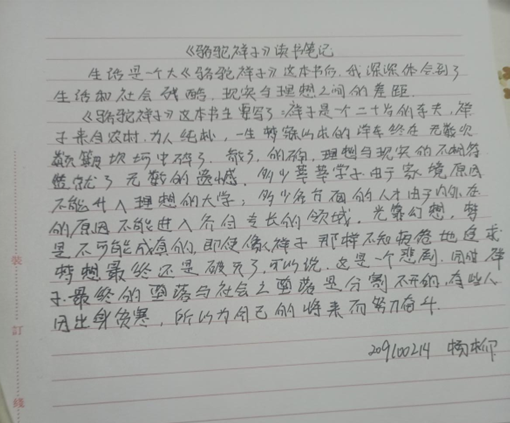 《骆驼祥子》读书笔记
生活是一个大《骆驼祥子》这本书后,我深深体会到了
生活和社会残酷,现实与理想之间的差距.
《骆驼祥子》这本书主要写了,祥子是一个二十岁的车夫,祥
子来自农村,为人纯朴,一生特殊的洋车终在无数次
坎坷中碎了.的确,理想与现实的不相符
造就了无数的遗憾.多少莘莘学子由于家境原因
不能升入理想的大学,多少各方面的人才由于内外在
的原因不能进入个付专长的领域.光靠幻想,
是不可能成真的,即使像祥子那样不知疲倦地追求
最终还是破灭了.可以说,这是一个悲剧,同时祥
子最终的堕落与社会之堕落是分割不开的,有些人
因出身贫寒,所以为自己的将来而努力奋斗.
209100214 杨
装
訂
線